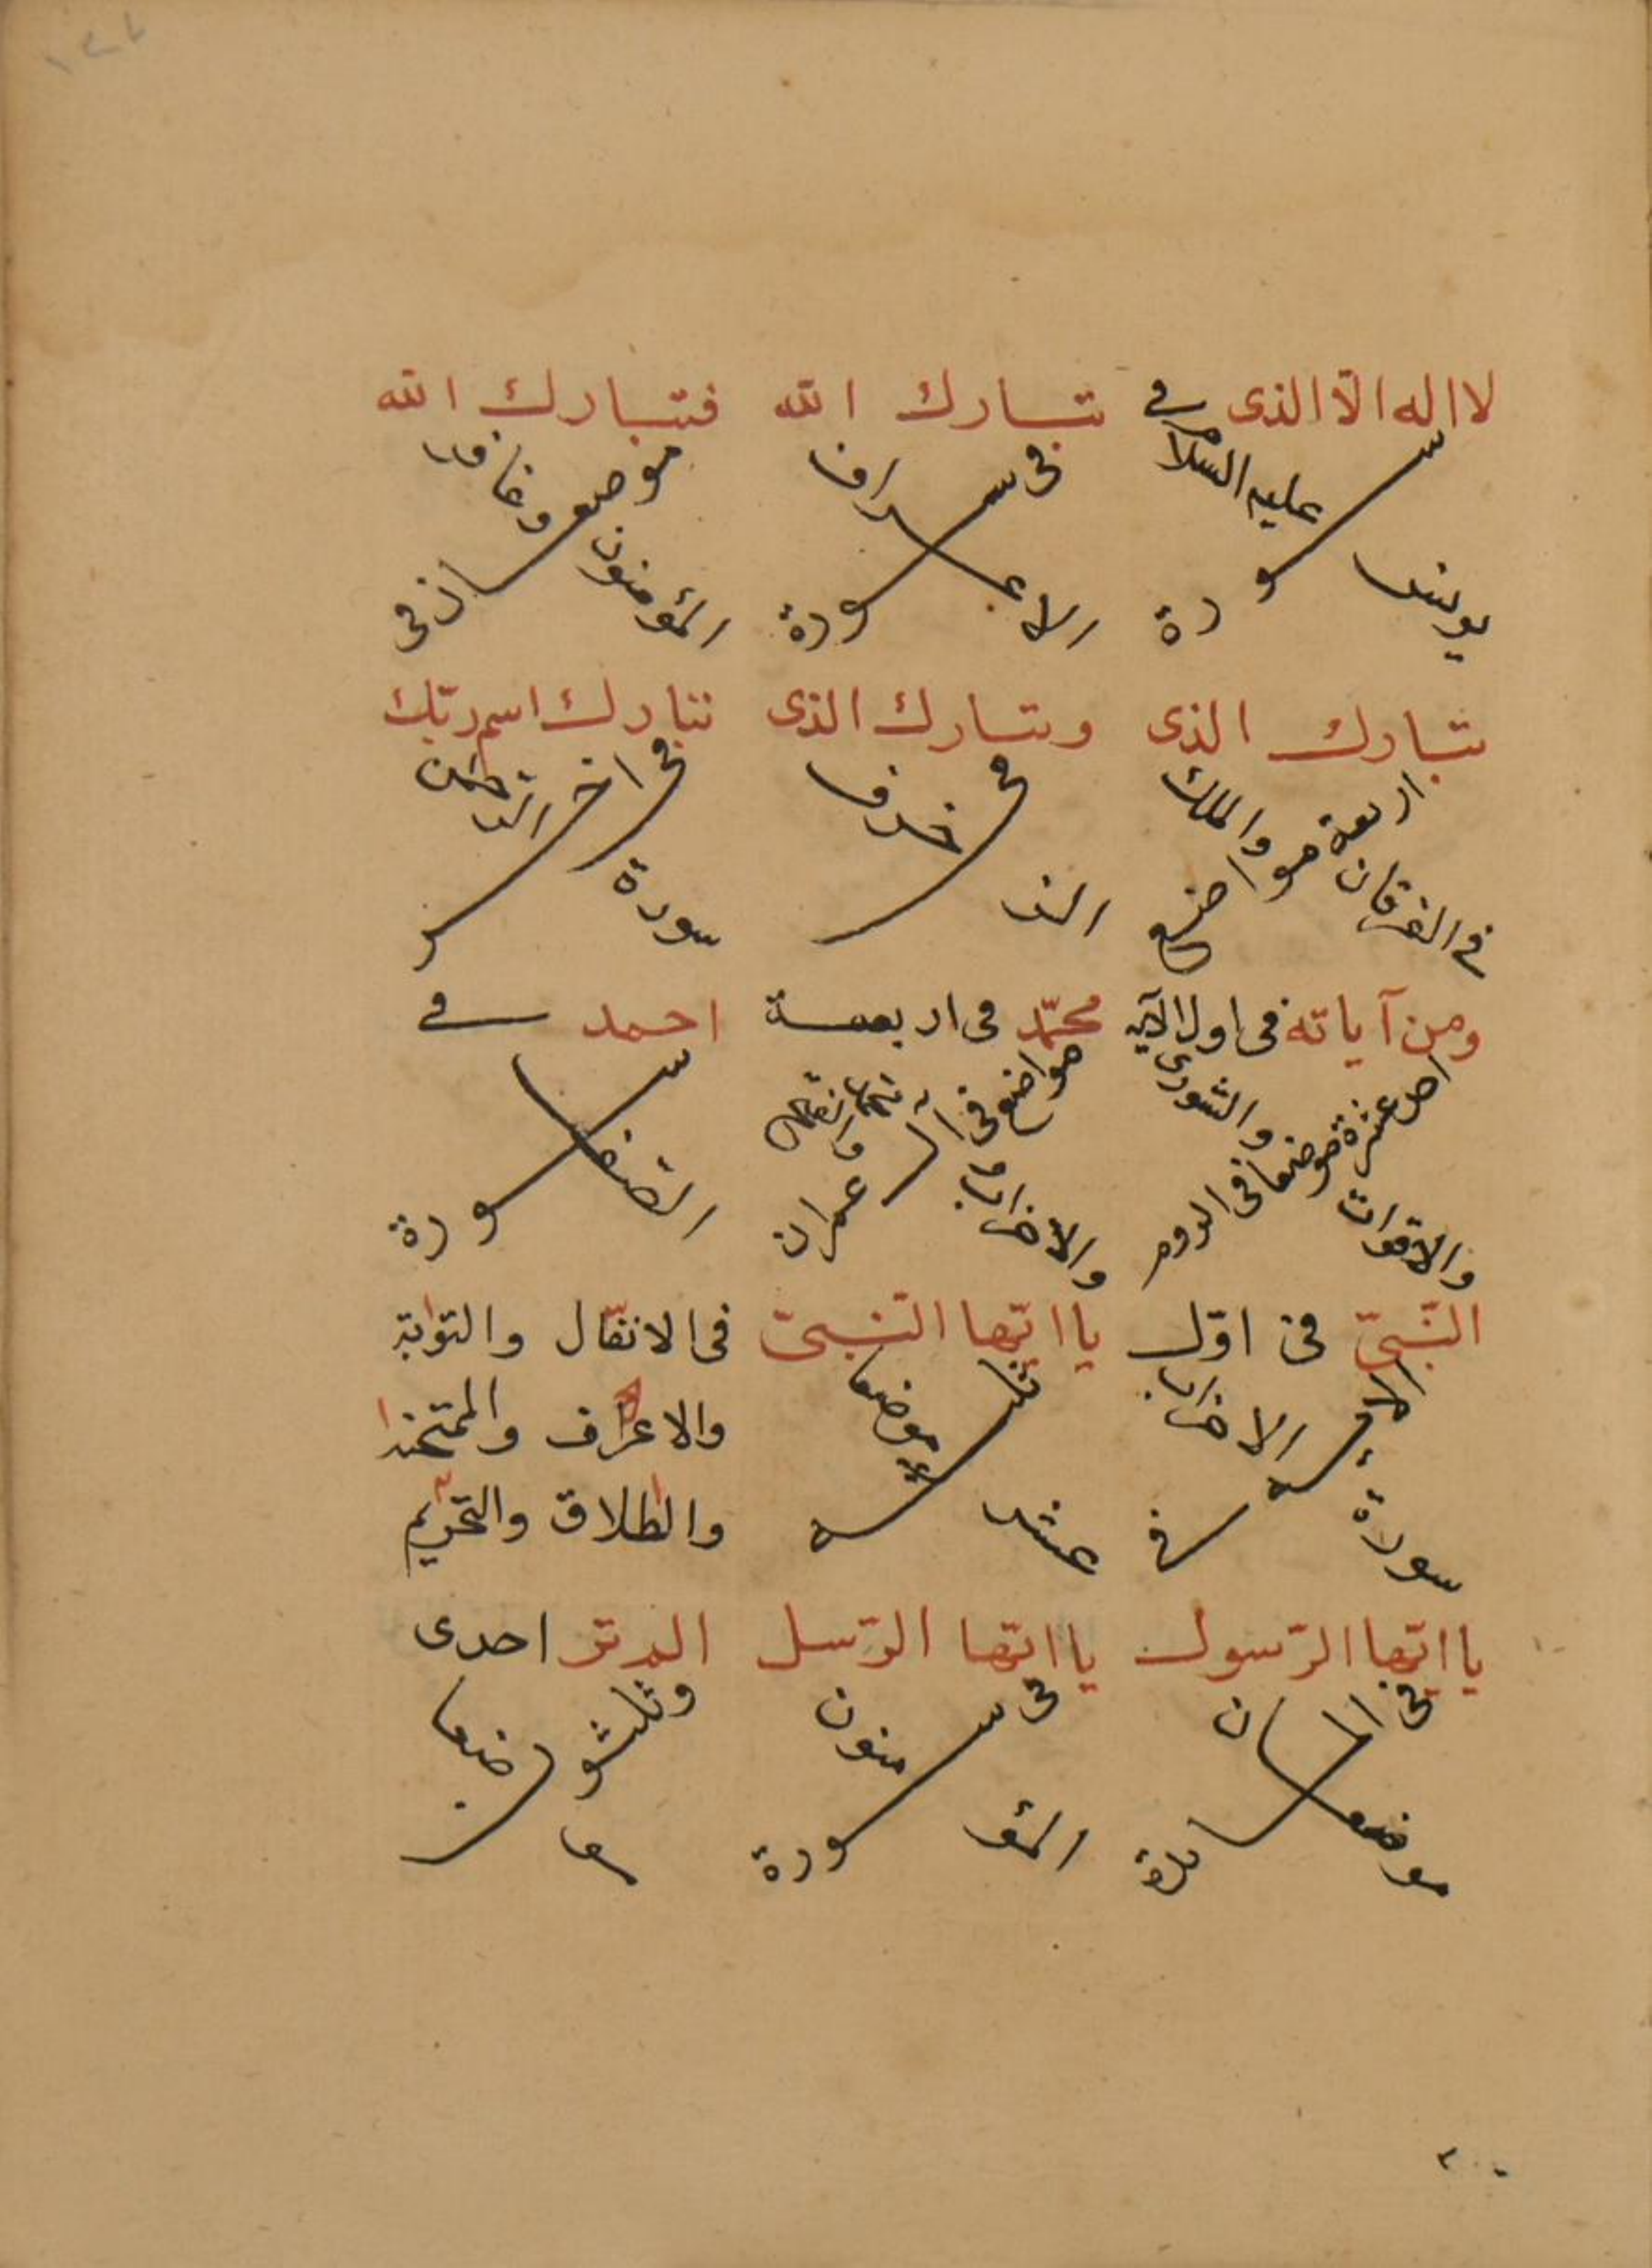 لا اله الا الذى فى
سورة
يونس عليه السلام
تبارك الله
فى سورة
الاعراف
فتبارك الله
موضعان فى
المؤمنون وغافر
تبارك الذى
اربعة مواضع
فى الفرقان والملك
وتبارك الذى
فى
الزخرف
تبارك اسم ربك
فى اخر
سورة الرحمن
ومن آياته فى اول الآية
احد عشرة موضعا فى الروم
والشورى
محمّد فى اربعة
مواضع فى ال عمران
والاحزاب
احمد فى
سورة
الصف
النّبىّ فى اوّل
سورة الاحزاب
يا ايّها النّبىّ
ثلثه
عشر موضعا
فى الانفال والتوبة
والاعراف والممتحنه
والطلاق والتحريم
يا ايّها الرّسول
فى المائدة
موضعان
يا ايّها الرّسل
فى سورة
المؤمنون
الم تر احدى
وثلثون
موضعا